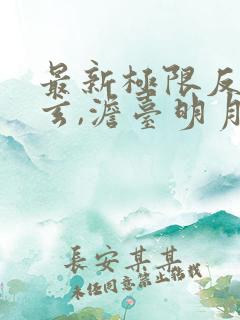 最新極限反
玄,澹臺明月
長安某某
未经同意禁止转载